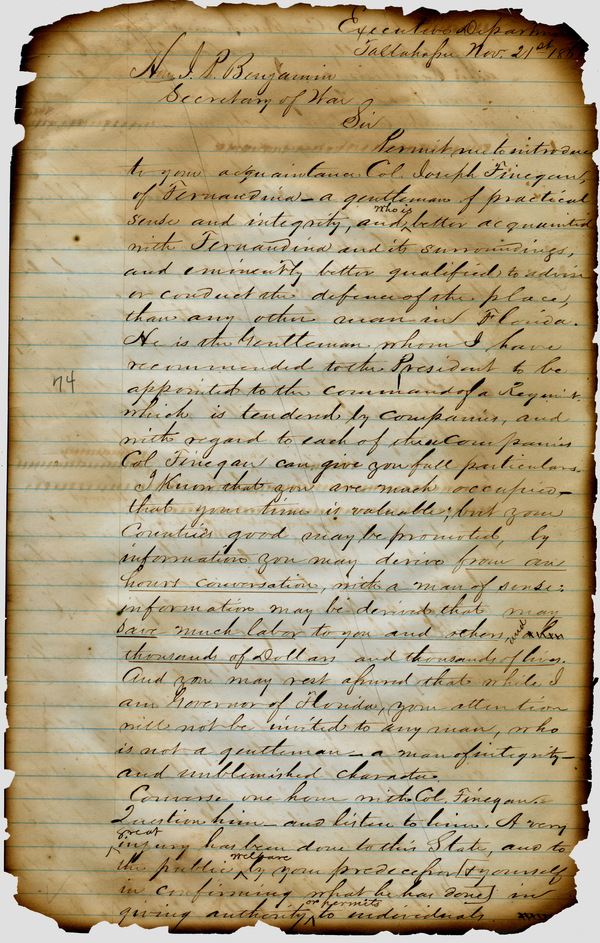 Executive Departm
Tallahassee Nov. 21st 186
Hon J. P. Benjamin
Secretary of War
Sir
Permit me to introduce
to your acquaintance Col. Joseph Finegan,
of Fernandina – a gentleman of practical
sense and integrity, and who is better acquainted
with Fernandina and its surroundings,
and eminently better qualified to advise
or conduct the defence of the place,
than any other man in Florida.
He is the Gentleman whom I have
recommended to the President to be
appointed to the command of a Regiment
74
which is tendered by companies, and
with regard to each of these Companies
Col. Finegan can give you full particulars.
I know that you are much occupied –
that your time is valuable; but your
Countries good may be promoted, by
information you may derive from an
hours conversation, with a man of sense:
information may be derived that may
save much labor to you and others, and
thousands of Dollars and thousands of lives.
And you may rest assured that while I
am Governor of Florida, your attention
will not be invited to any man, who
is not a gentleman – a man of integrity –
and unblemished character.
Converse one hour with Col. Finegan.
Question him – and listen to him. A very
great injury has been done to this State, and to
the public welfare by your predecessor [& yourself
in confirming what he has done] in
giving authority or permits to individuals.